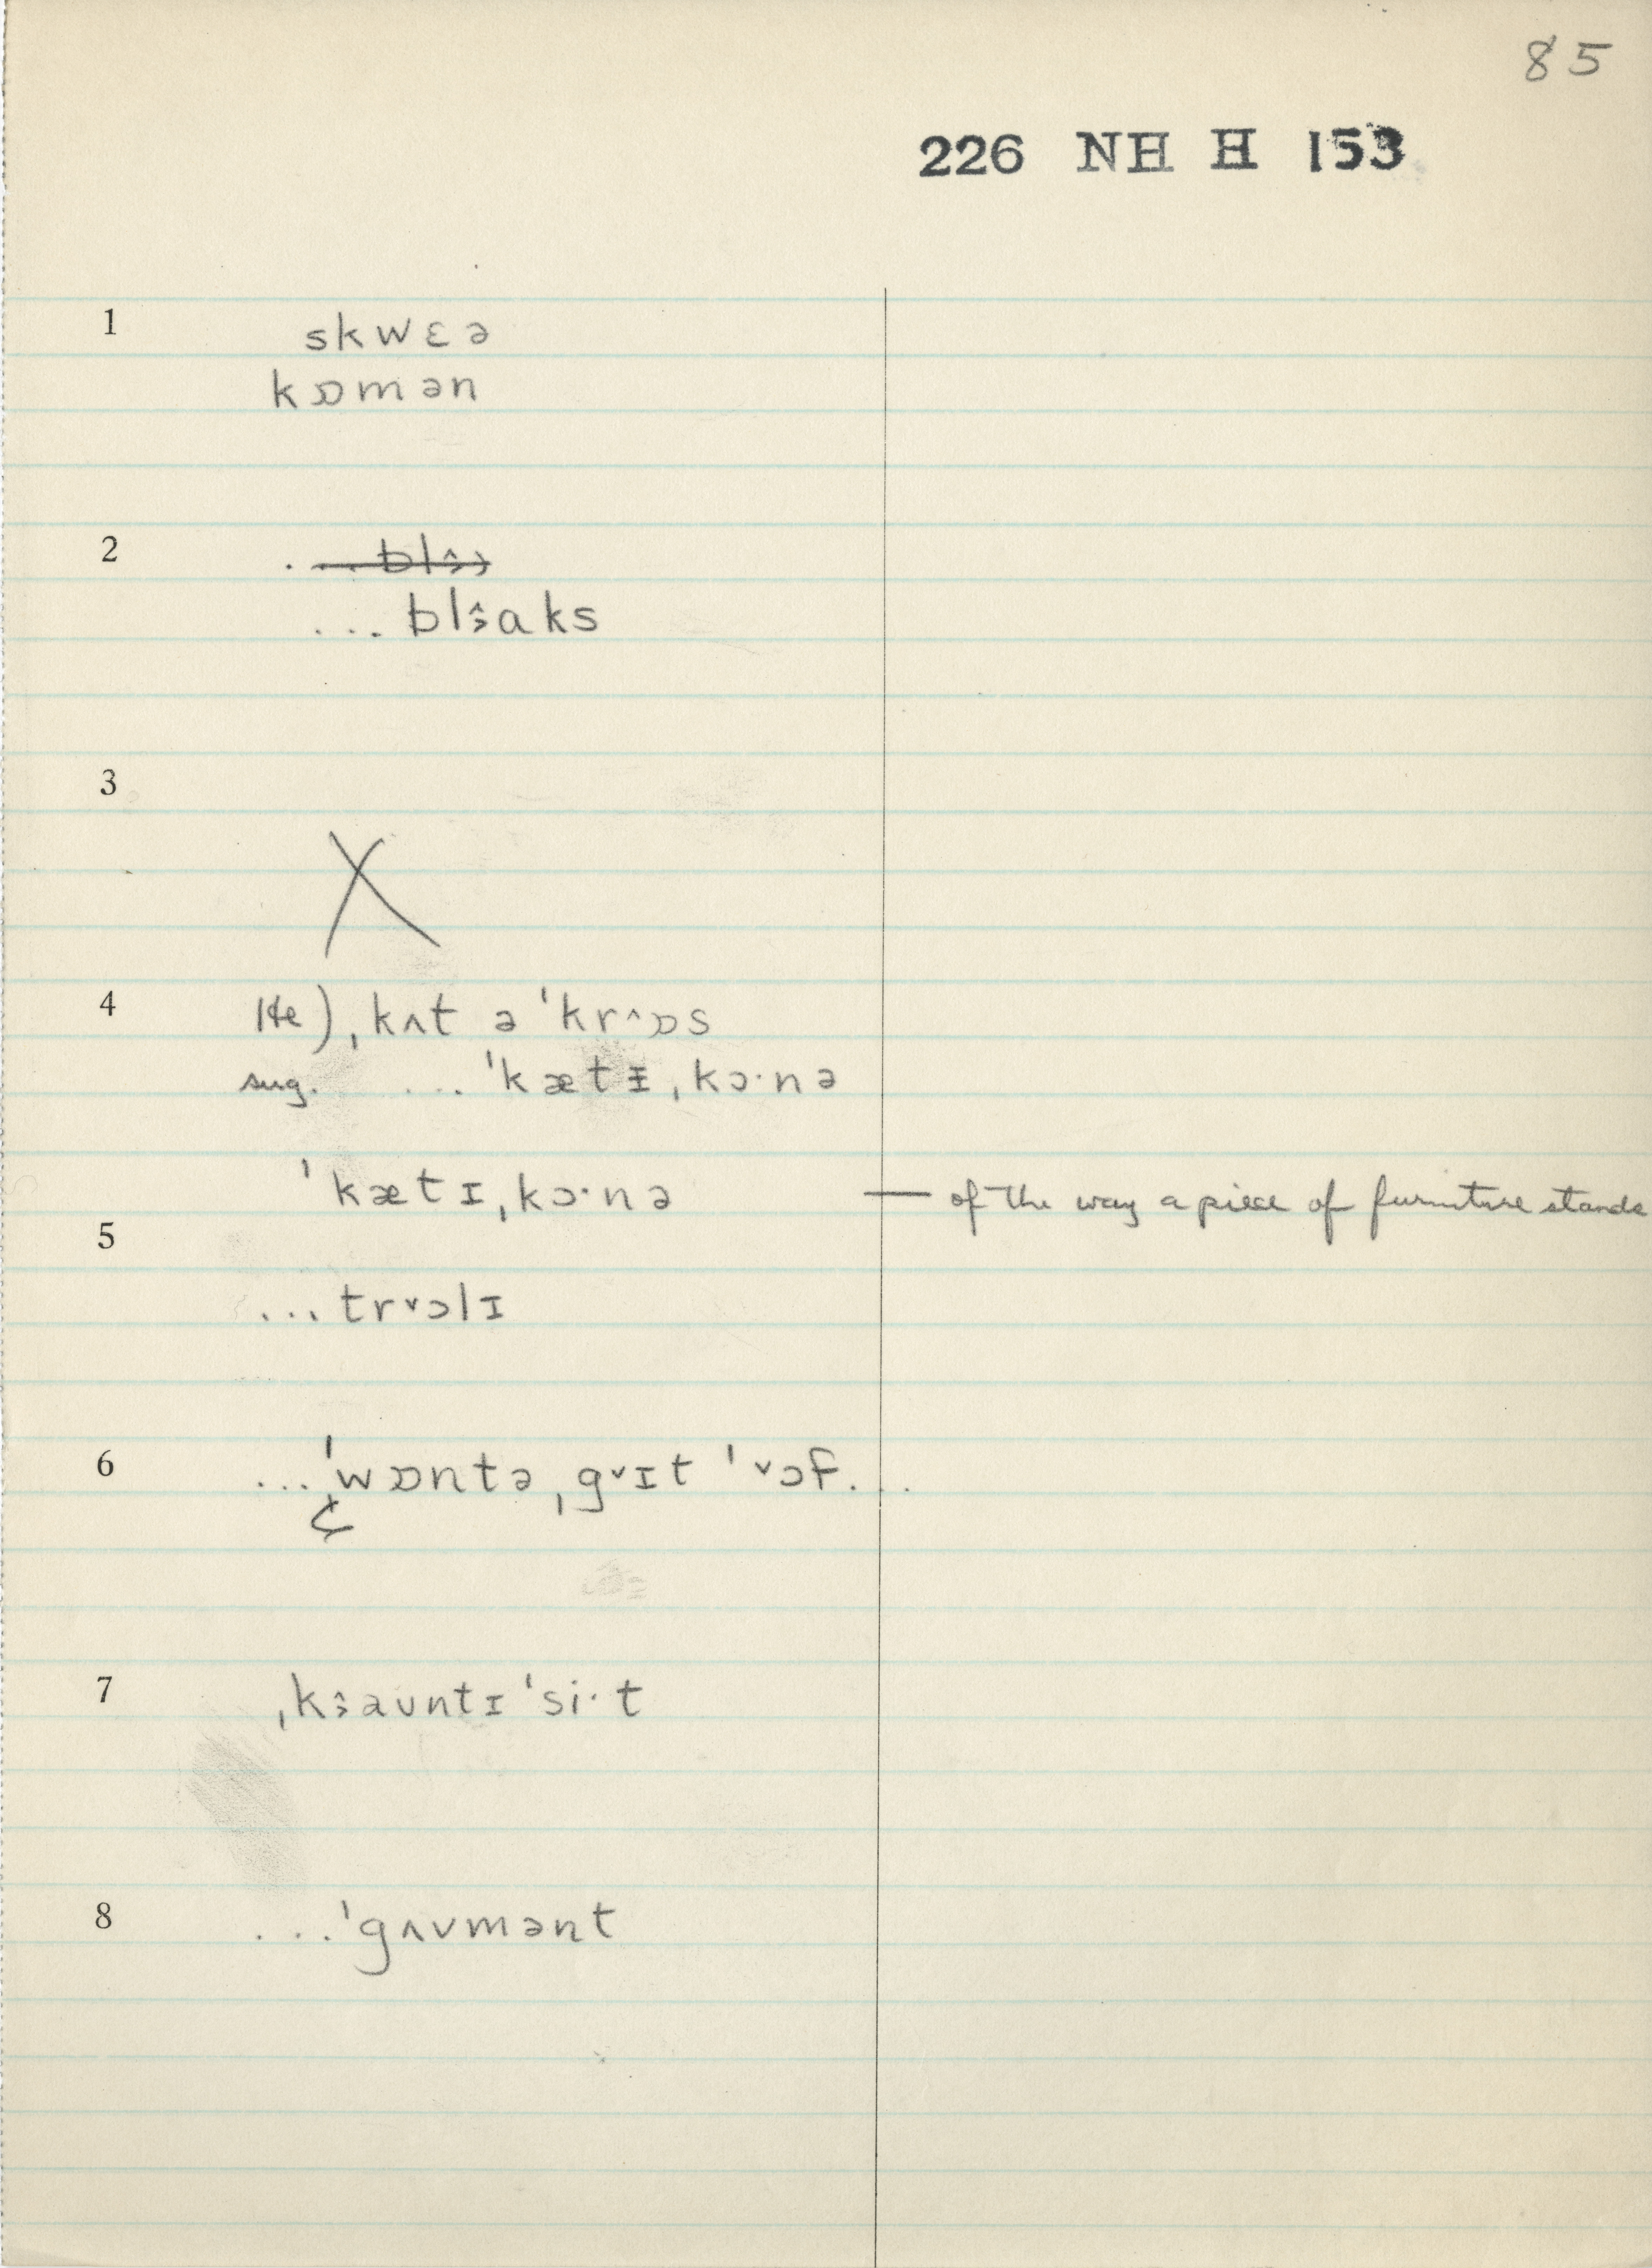 85
226 NH H 153
1 skwɛə
kɒmən
2 . ... blɜ
... blɜ̂aks
3
X
4 He) ˌkʌt ə ˈkr^ɒs
sug. ... ˈkætᵻˌkɔ·nə
ˈkætɪˌkɔ·nə — of the way a piece of furniture stands
5
... trˇɔlɪ
6 ... ˈwɒntəˌgˇɪt ˈˇɔf...
7 ˌkɜaʊntɪˈsi·t
8 ... ˈgʌvmənt